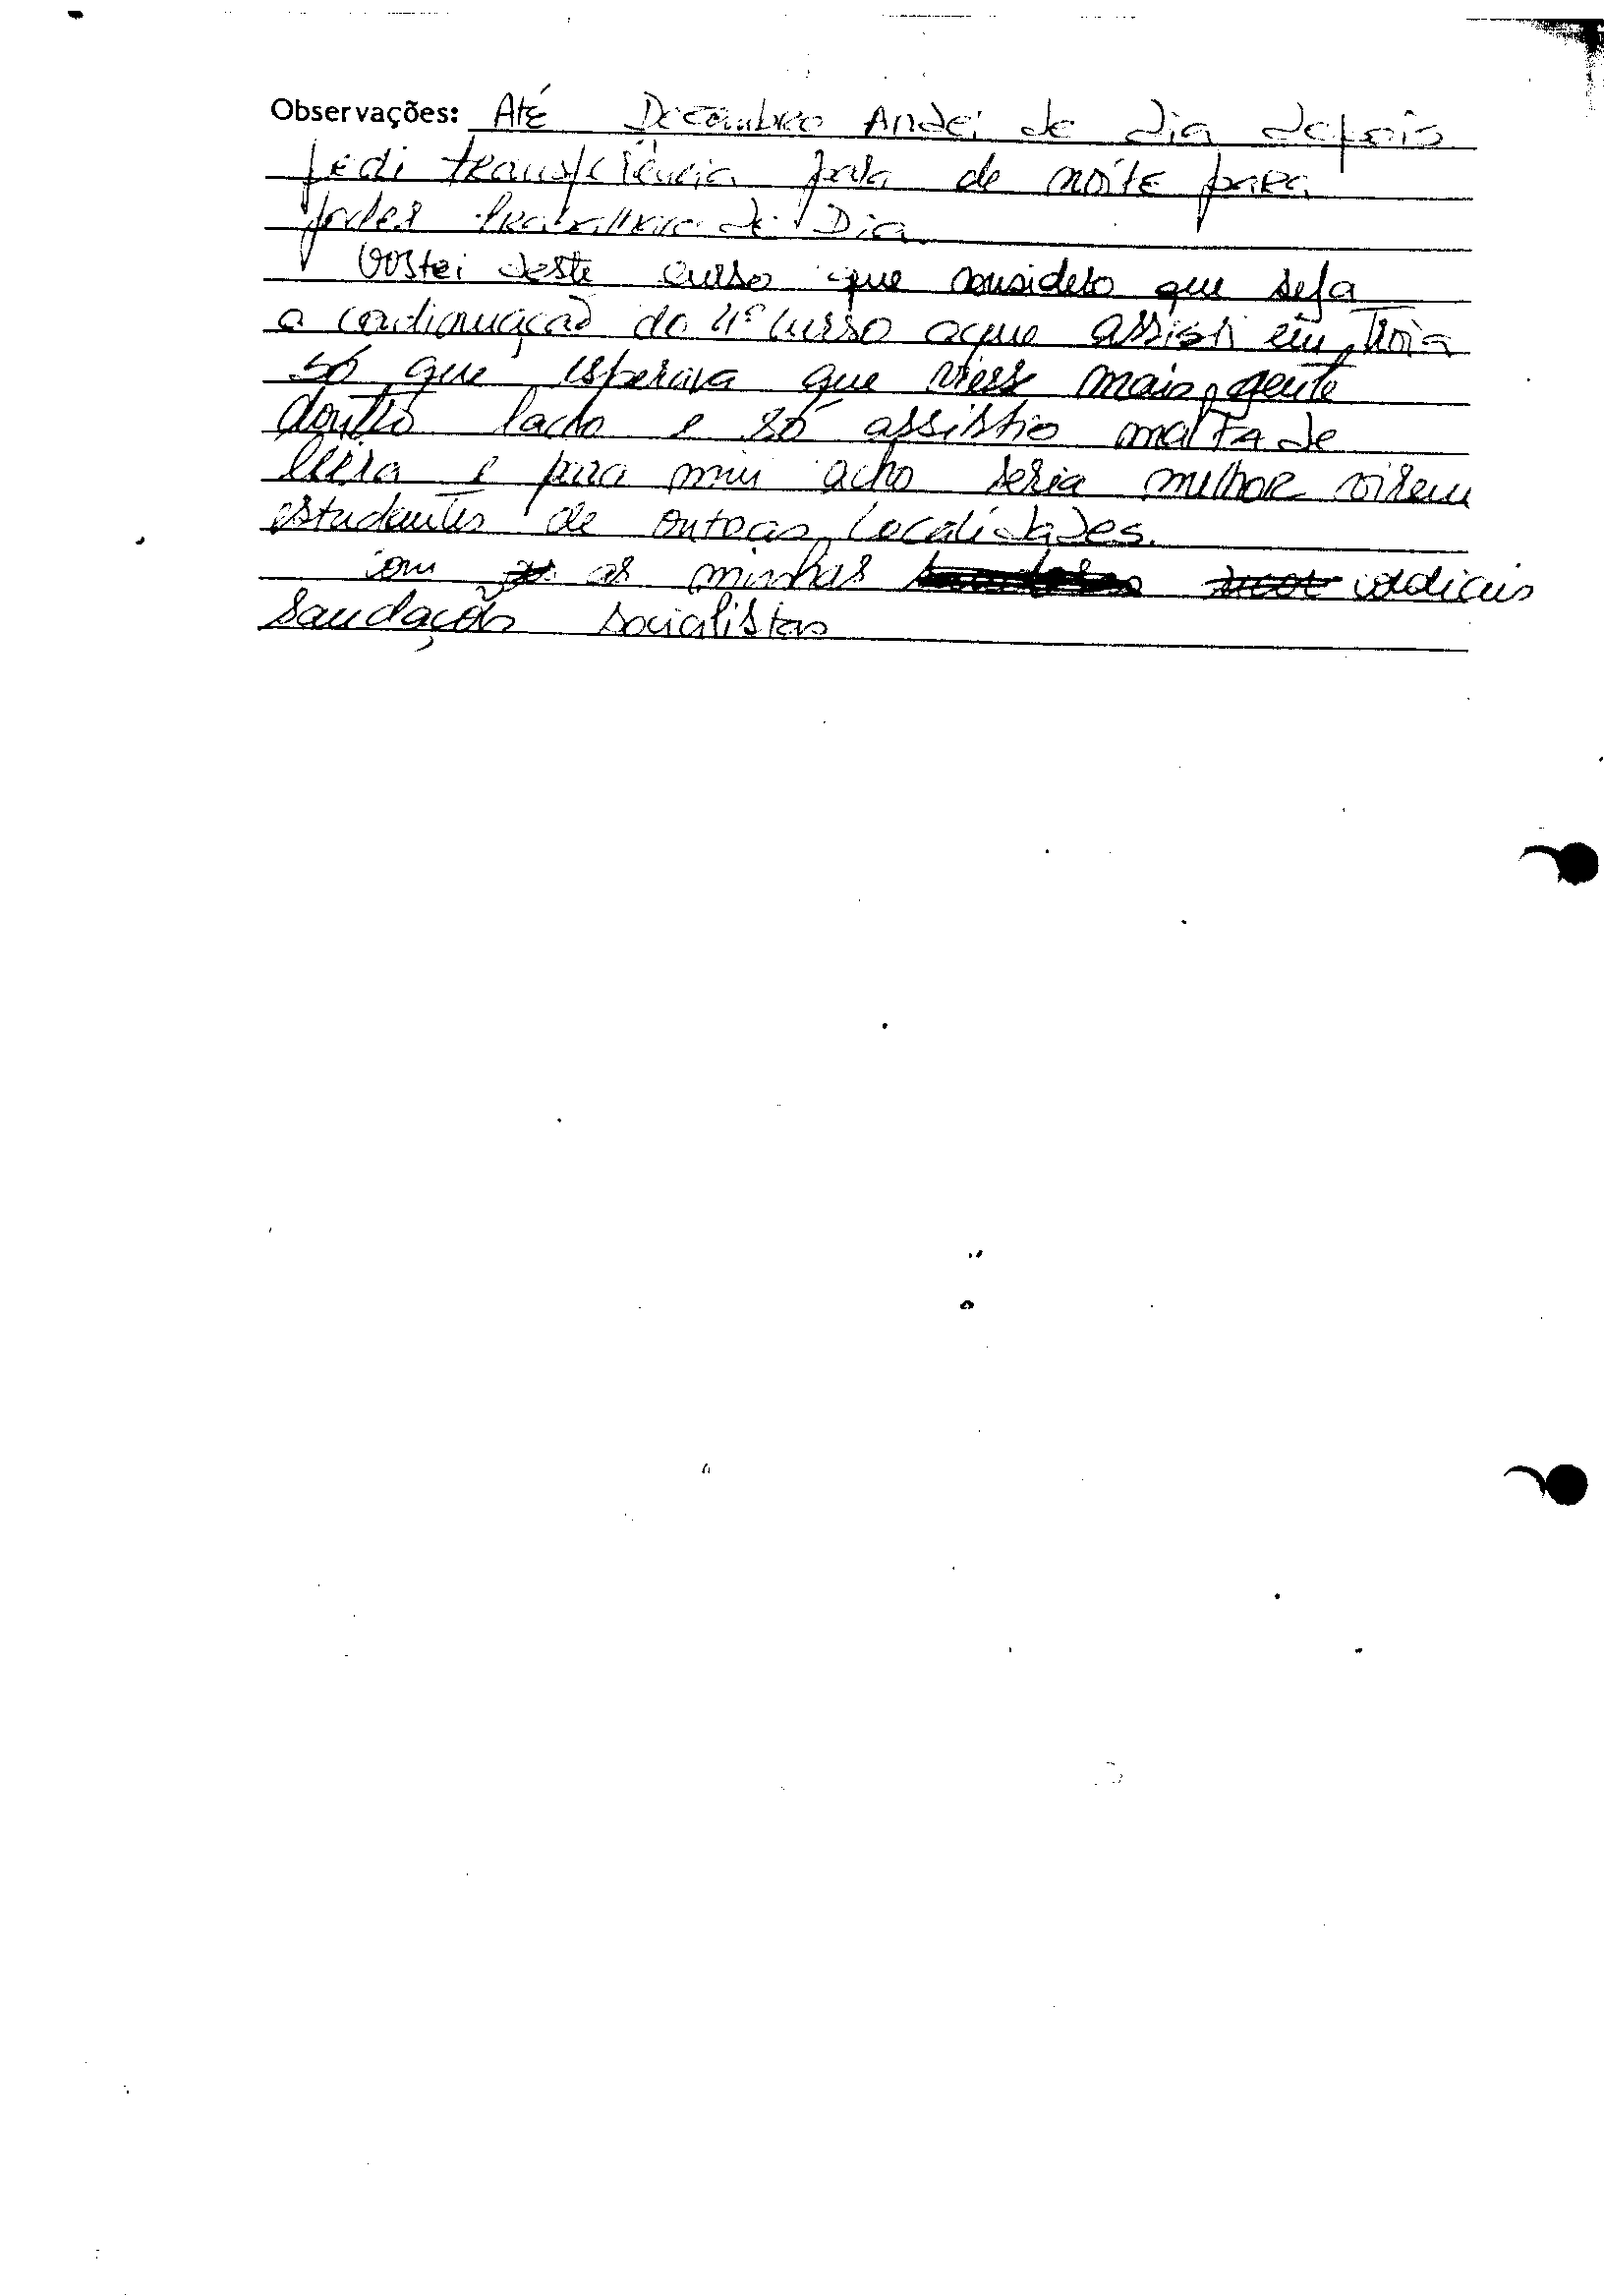 Observações: Até Dezembro Andei de dia depois
pedi transferência para de noite para
poder trabalhar de Dia.
Gostei deste curso que considero que seja
a continuação do 4º curso aque assisti em Troia
só que esperava que viesse mais gente
doutro lado e só assistio malta de
e para mim acho seria melhor virem
estudantes de outras localidades.
com as minhas cordiais
saudações socialistas